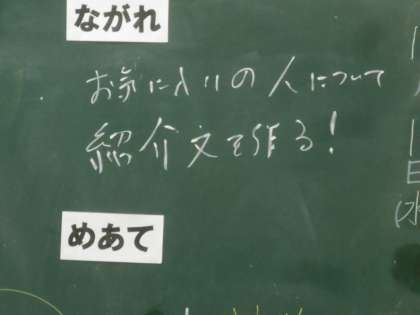 ながれ
お気に入りの人について
紹介文を作る!
めあて
日
(水